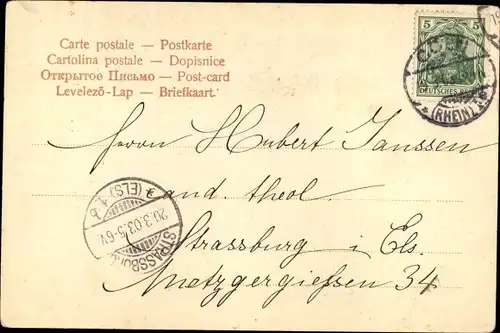 Carte postale — Postkarte
Cartolina postale — Dopisnice
Открытое Письмо — Post-card
Levelező-Lap — Briefkaart.
5 5
DEUTSCHES
(RHEIN)
Herrn Hubert Janssen
cand. theol.
Strassburg i Els.
Metzgergiessen 34
STRASSBURG
20.3.03.5-6V.
(ELS) 1. b